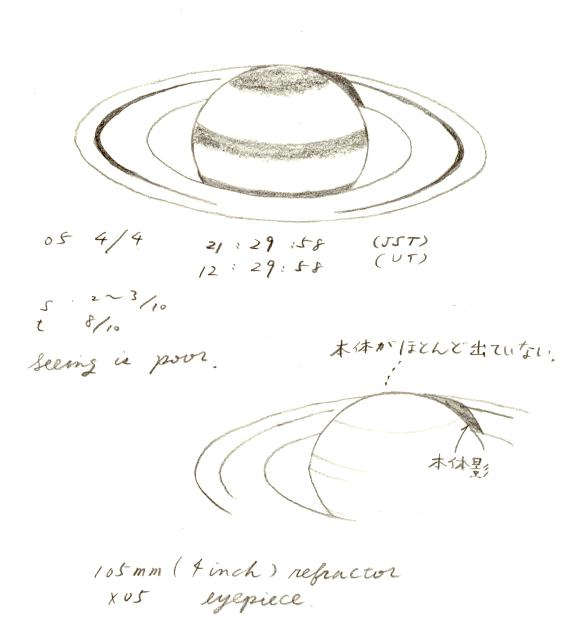 05 4/4 21:29:58 (JST)
12:29:58 (UT)
s 2~3/10
t 8/10
Seeing is poor.
本体がほとんど出ていない.
本体影
105mm (4inch) refractor
eyepiece